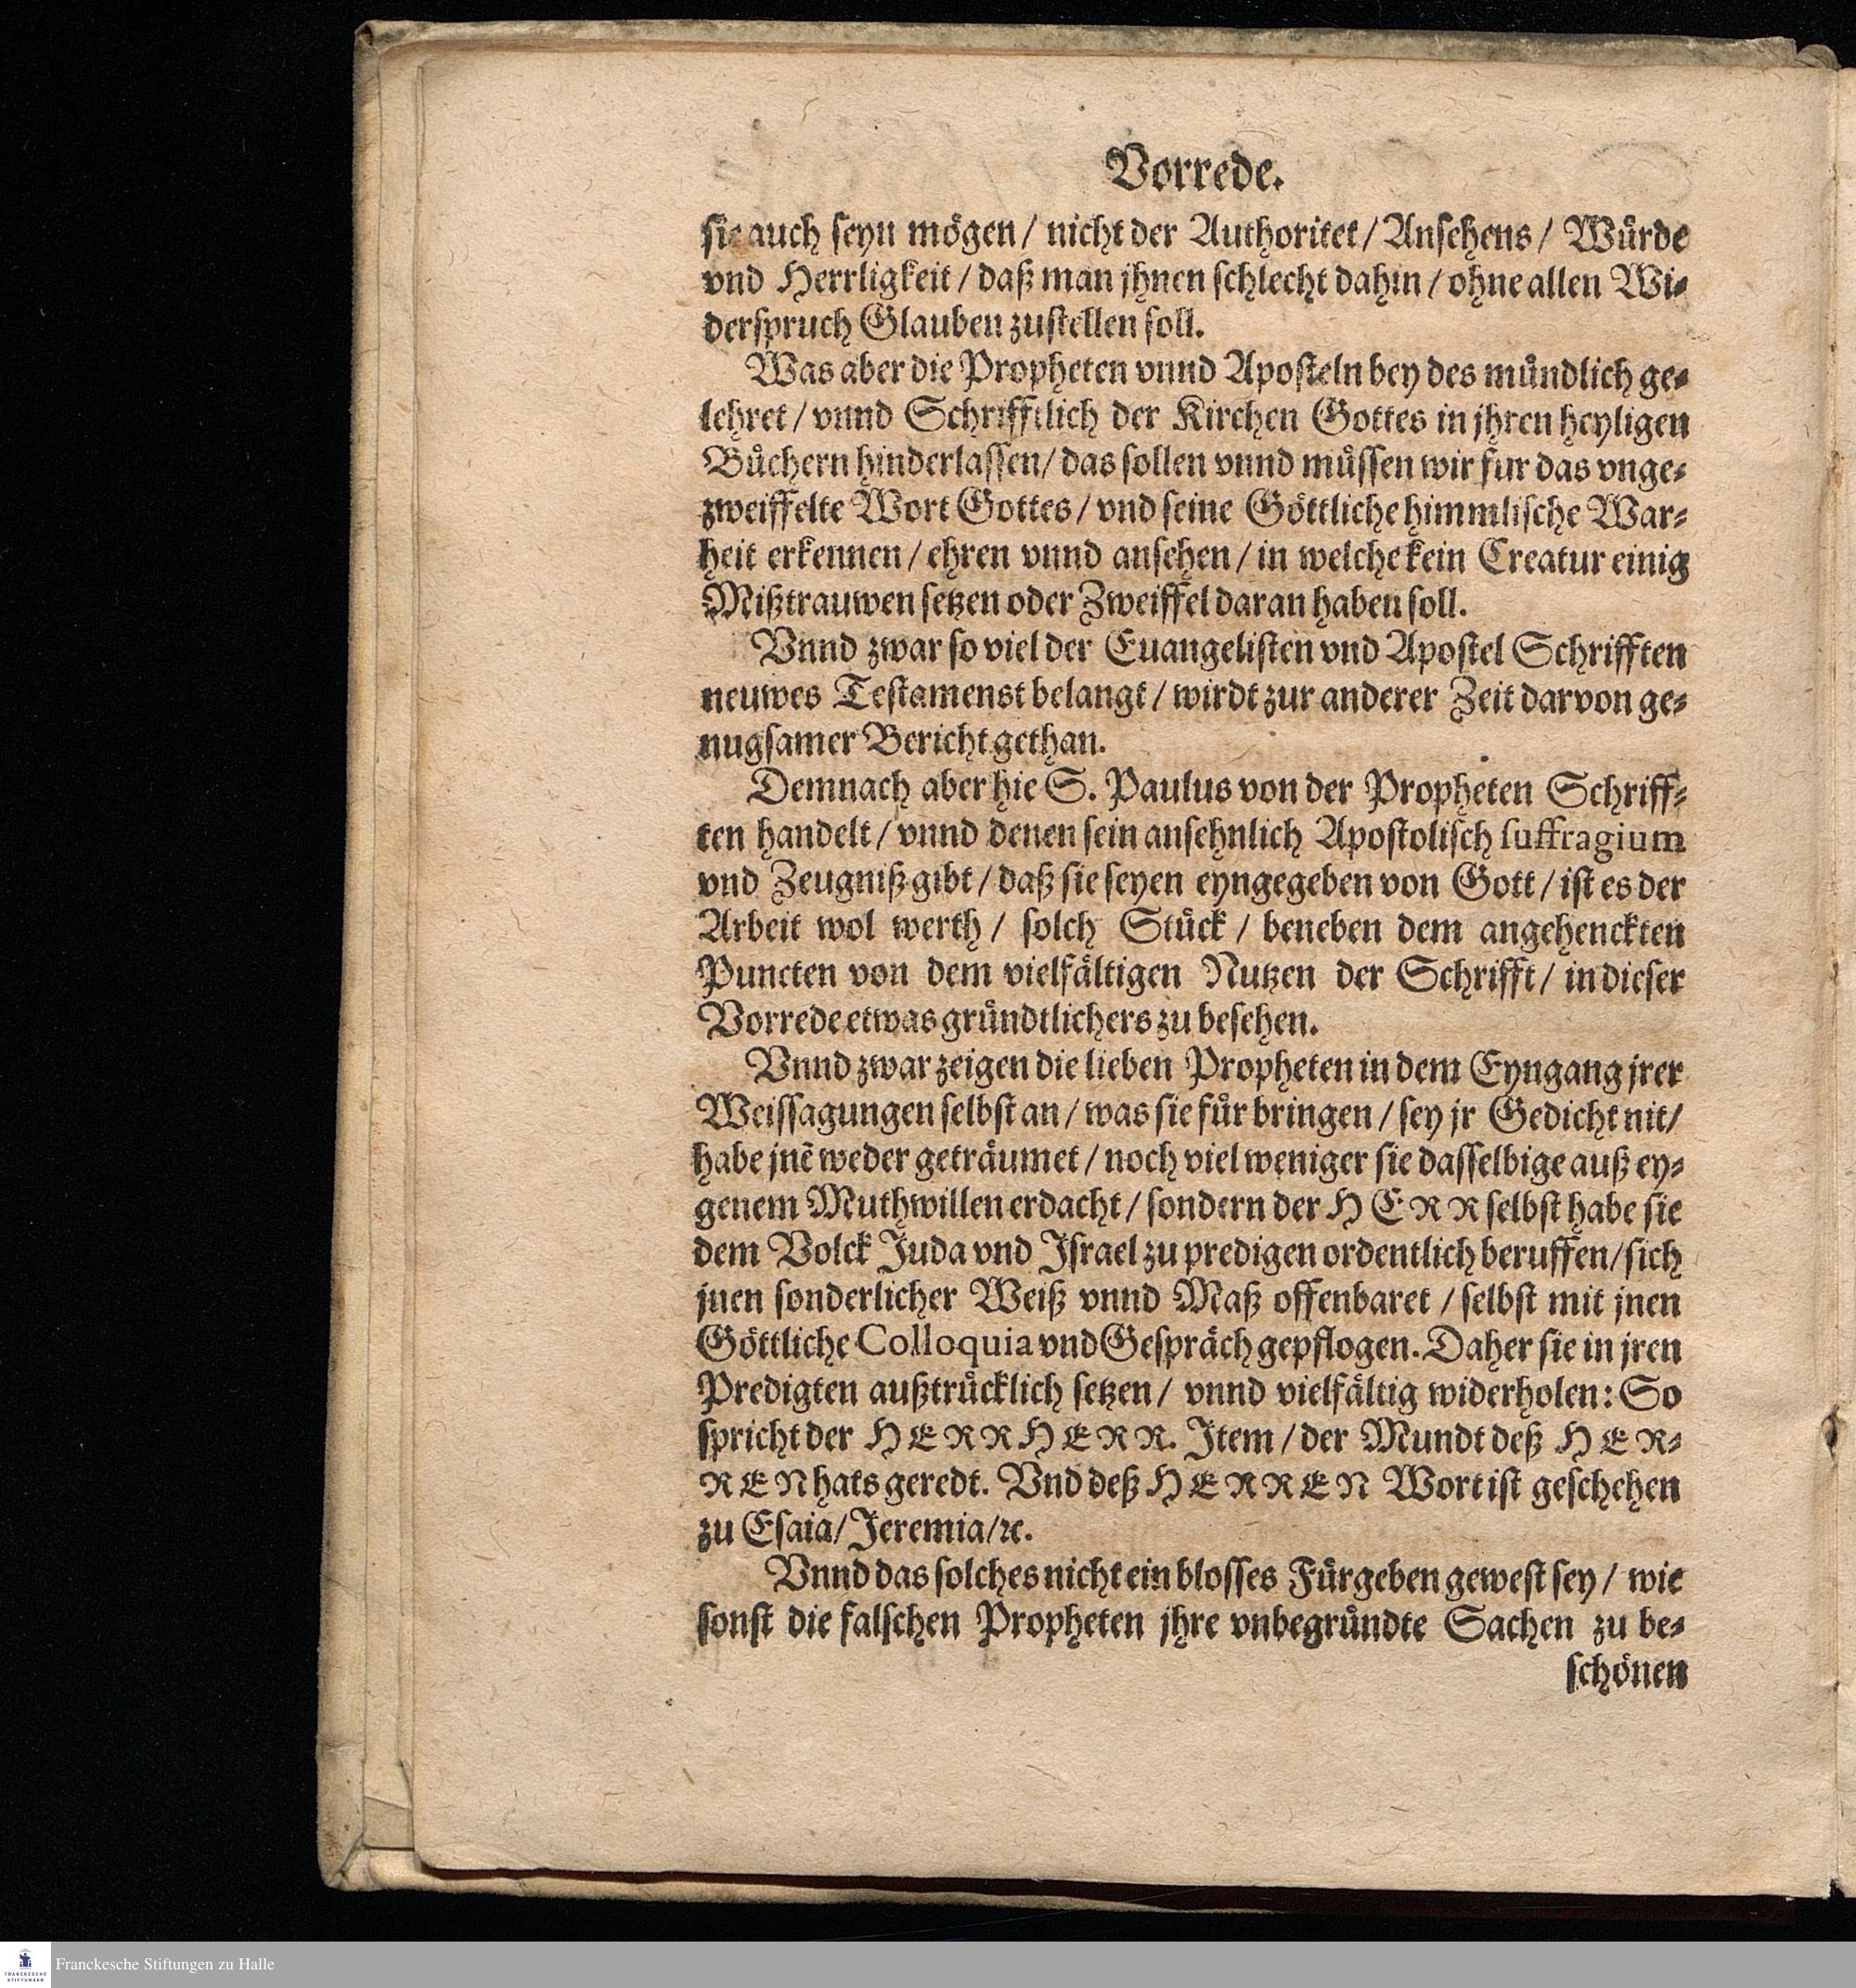 Vorrede.
sie auch seyn mögen / nicht der Authoritet / Ansehens / Würde
vnd Herrligkeit / daß man jhnen schlecht dahin / ohne allen Wi-
derspruch Glauben zustellen soll.
Was aber die Propheten vnnd Aposteln bey des mündlich ge-
lehret / vnnd Schrifftlich der Kirchen Gottes in jhren heyligen
Büchern hinderlassen / das sollen vnnd müssen wir fur das vnge-
zweiffelte Wort Gottes / vnd seine Göttliche himmlische War-
heit erkennen / ehren vnnd ansehen / in welche kein Creatur einig
Mißtrauwen setzen oder Zweiffel daran haben soll.
Vnnd zwar so viel der Euangelisten vnd Apostel Schrifften
neuwes Testamenst belangt / wirdt zur anderer Zeit darvon ge-
nugsamer Bericht gethan.
Demnach aber hie S. Paulus von der Propheten Schriff-
ten handelt / vnnd denen sein ansehnlich Apostolisch suffragium
vnd Zeugniß gibt / daß sie seyen eyngegeben von Gott / ist es der
Arbeit wol werth / solch Stück / beneben dem angehenckten
Puncten von dem vielfältigen Nutzen der Schrifft / in dieser
Vorrede etwas gründtlichers zu besehen.
Vnnd zwar zeigen die lieben Propheten in dem Eyngang jrer
Weissagungen selbst an / was sie für bringen / sey jr Gedicht nit /
habe jnẽ weder geträumet / noch viel weniger sie dasselbige auß ey-
genem Muthwillen erdacht / sondern der HERR selbst habe sie
dem Volck Juda vnd Israel zu predigen ordentlich beruffen / sich
jnen sonderlicher Weiß vnnd Maß offenbaret / selbst mit jnen
Göttliche Colloquia vnd Gespräch gepflogen. Daher sie in jren
Predigten außtrücklich setzen / vnnd vielfältig widerholen: So
spricht der HERR HERR. Item / der Mundt deß HER-
REN hats geredt. Vnd deß HERREN Wort ist geschehen
zu Esaia / Jeremia / ꝛc.
Vnnd das solches nicht ein blosses Fürgeben gewest sey / wie
sonst die falschen Propheten jhre vnbegründte Sachen zu be-
schönen
FRANCKESCHE
STIFTUNGEN
Franckesche Stiftungen zu Halle